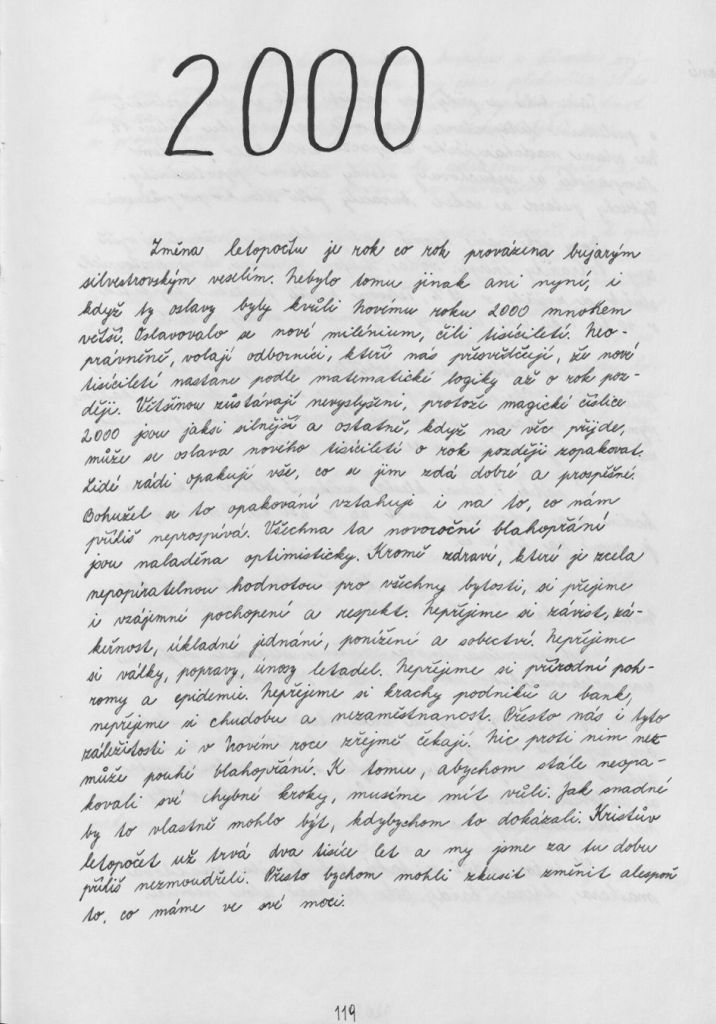 2000
Změna letopočtu je rok co rok provázena bujarým
silvestrovským veselím. Nebylo tomu jinak ani nyní, i
když ty oslavy byly kvůli Novému roku 2000 mnohem
větší. Oslavovalo se nové milénium, čili tisíciletí. Neo-
právněně, volají odborníci, kteří nás přesvědčují, že nové
tisíciletí nastane podle matematické logiky až o rok poz-
ději. Většinou zůstávají nevyslyšeni, protože magické číslice
2000 jsou jaksi silnější a ostatně, když na věc přijde,
může se oslava nového tisíciletí o rok později zopakovat.
Lidé rádi opakují vše, co se jim zdá dobré a prospěšné.
Bohužel se to opakování vztahuje i na to, co nám
příliš neprospívá. Všechna ta novoroční blahopřání
jsou naladěna optimisticky. Kromě zdraví, které je zcela
nepopiratelnou hodnotou pro všechny bytosti, si přejeme
i vzájemné pochopení a respekt. Nepřejeme si závist, zá-
keřnost, úkladné jednání, ponížení a sobectví. Nepřejeme
si války, popravy, únosy letadel. Nepřejeme si přírodní poh-
romy a epidemie. Nepřejeme si krachy podniků a bank,
nepřejeme si chudobu a nezaměstnanost. Přesto nás i tyto
záležitosti i v Novém roce zřejmě čekají. Nic proti nim nez-
může pouhé blahopřání. K tomu, abychom stále neopa-
kovali své chybné kroky, musíme mít vůli. Jak snadné
by to vlastně mohlo být, kdybychom to dokázali. Kristův
letopočet už trvá dva tisíce let a my jsme za tu dobu
příliš nezmoudřeli. Přesto bychom mohli zkusit změnit alespoň
to, co máme ve své moci.
119